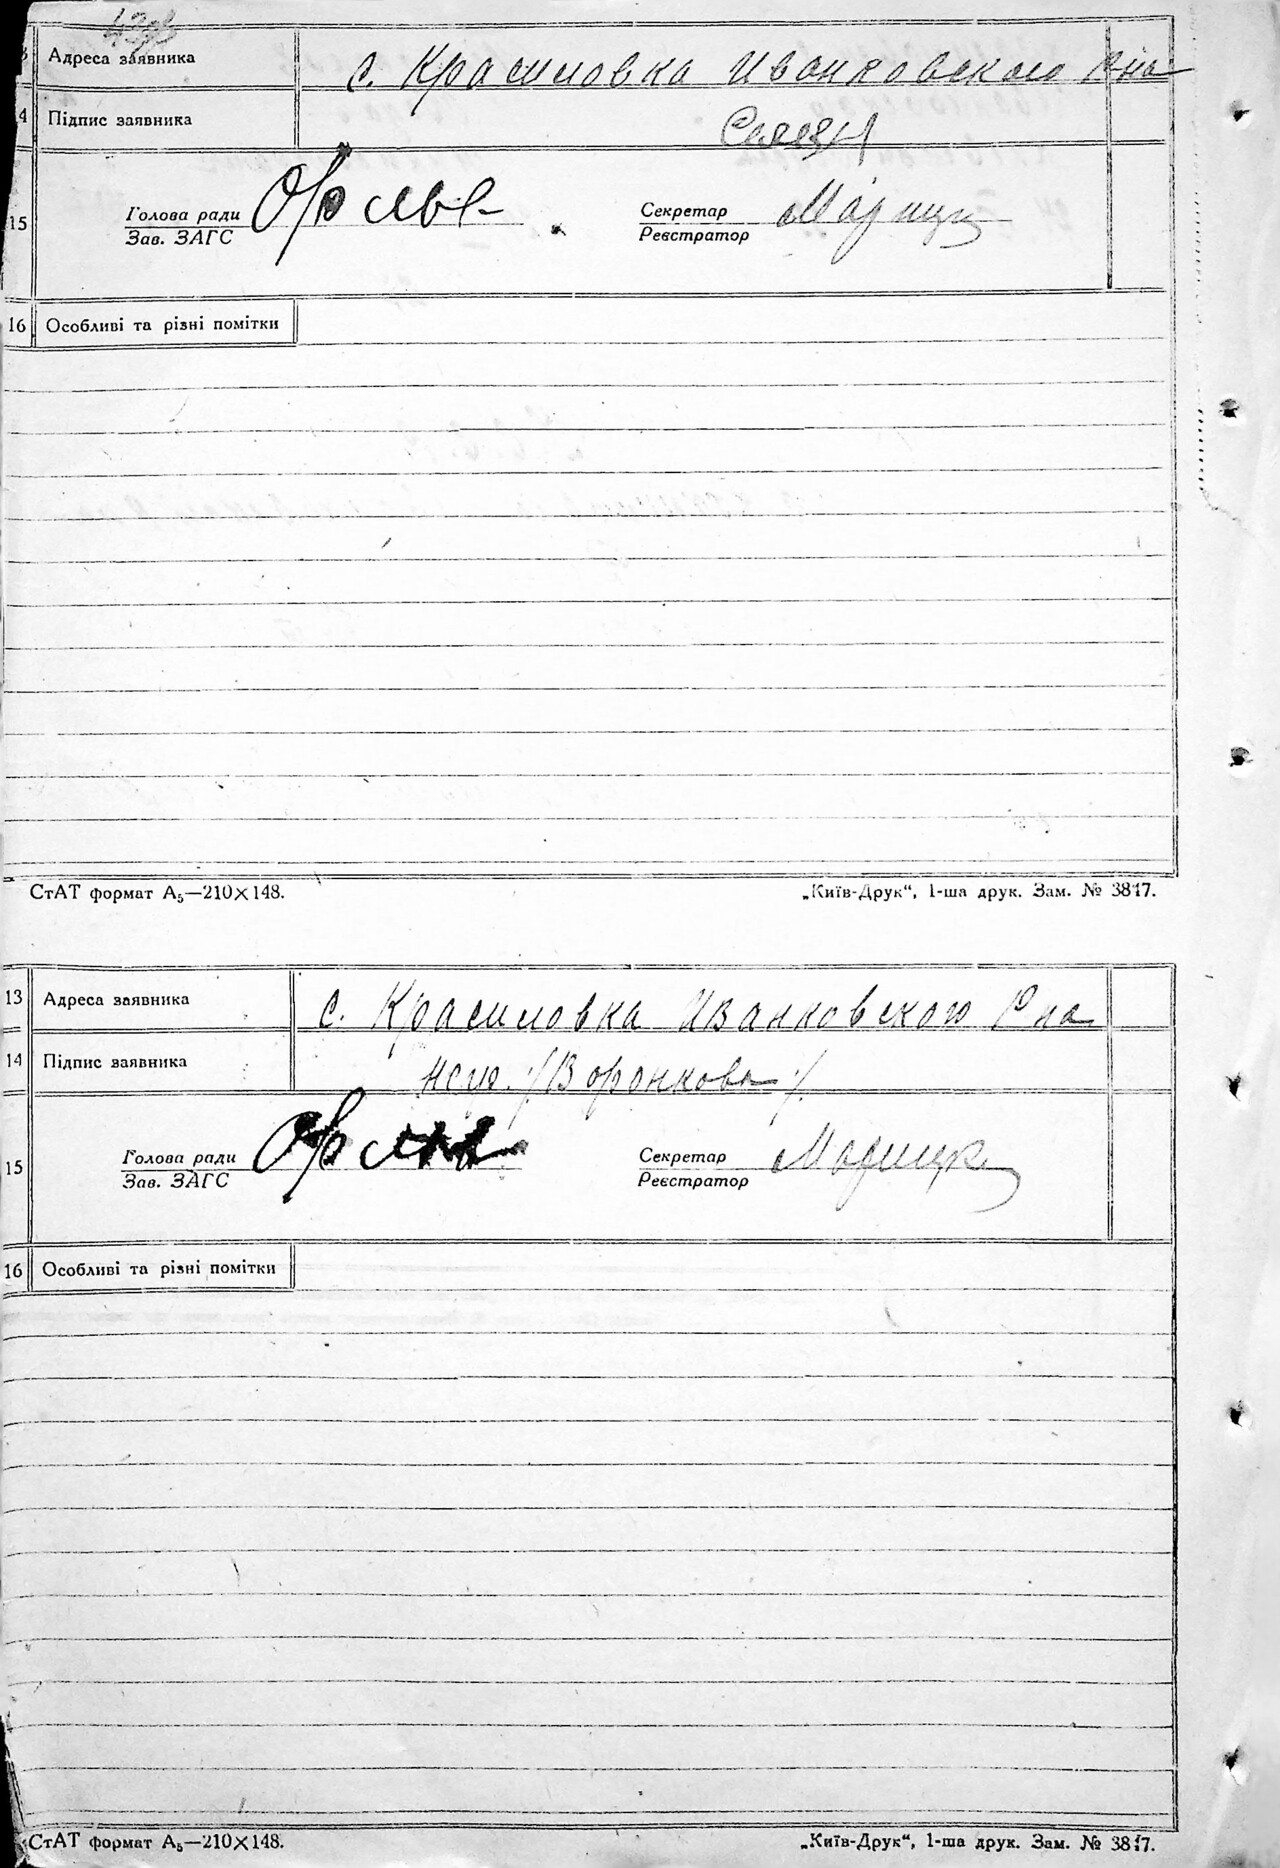 43зв
Адреса заявника с. Красиловка Иванковского Р-на
14 Підпис заявника
15 Голова ради Секретар Марницк
Зав. ЗАГС Реєстратор
16 Особливі та різні помітки
СтАТ формат А₅—210×148. „Київ-Друк“, 1-ша друк. Зам. № 3817.
13 Адреса заявника с. Красиловка Иванковского Р-на
14 Підпис заявника /Воронкова/
15 Голова ради Секретар
Зав. ЗАГС Реєстратор
16 Особливі та різні помітки
СтАТ формат А₅—210×148. „Київ-Друк“, 1-ша друк. Зам. № 3817.